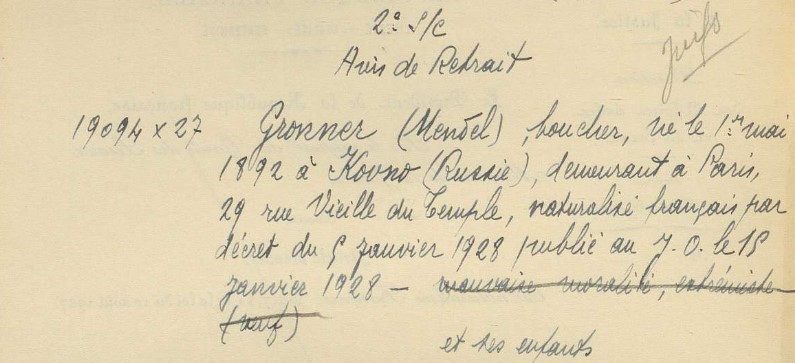 2e S/c
Juifs
Avis de Retrait
19094 x 27 Grosner (Mendel), boucher, né le 1er mai
1892 à Kovno (Russie), demeurant à Paris,
29 rue Vieille du Temple, naturalisé français par
décret du 5 janvier 1928 publié au J.O. le 15
janvier 1928 – mauvaise moralité, extrémiste
(veuf)
et ses enfants